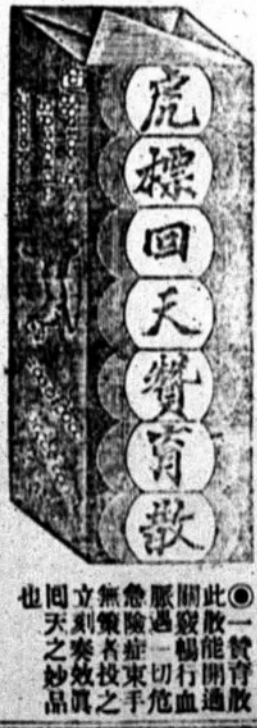 虎標回天贊育散
◉一贊育散
此散能開通
關竅暢行血
脈遇一切危
急險症束手
無策者投之
立刻奏效眞
回天之妙品
也